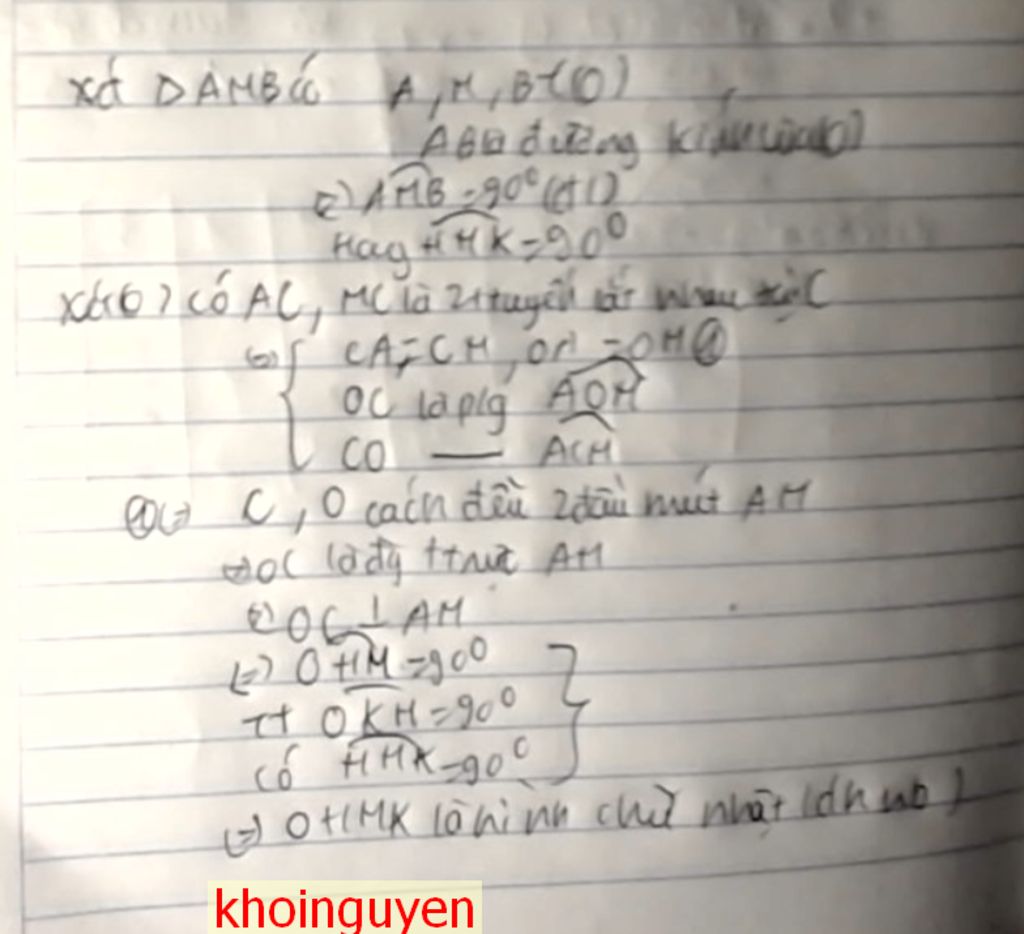 Xét ΔAMB có A, M, B ∈ (O)
AB là đường kính của (O)
=> AMB = 90° (t/c)
Hay HMK = 90°
Xét (O) có AC, MC là 2 t tuyến cắt nhau tại C
=> { CA = CM, OA = OM ①
OC là p/g AOM
CO — ACM
① => C, O cách đều 2 đầu mút AM
=> OC là đg ttrực AM
=> OC ⊥ AM
=> OHM = 90°
TT OKM = 90°
có HMK = 90°
=> OHMK là hình chữ nhật (dhnb)
khoinguyen